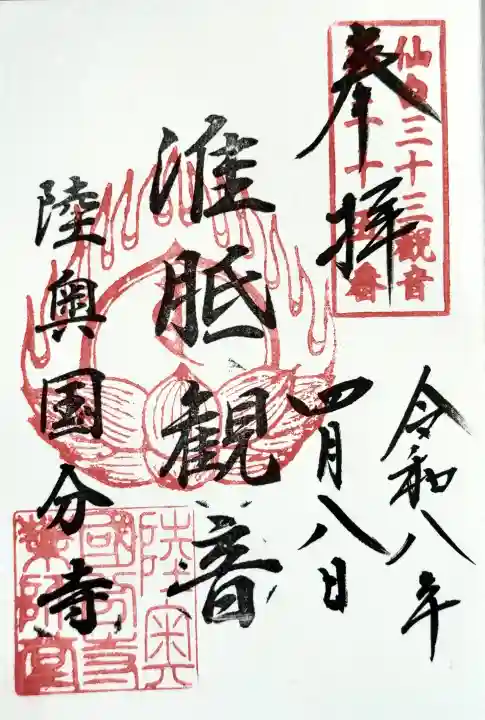 仙台三十三觀音
奉拝
令和八年
四月八日
准胝観音
陸奥国分寺
陸奥
國分寺
薬師堂